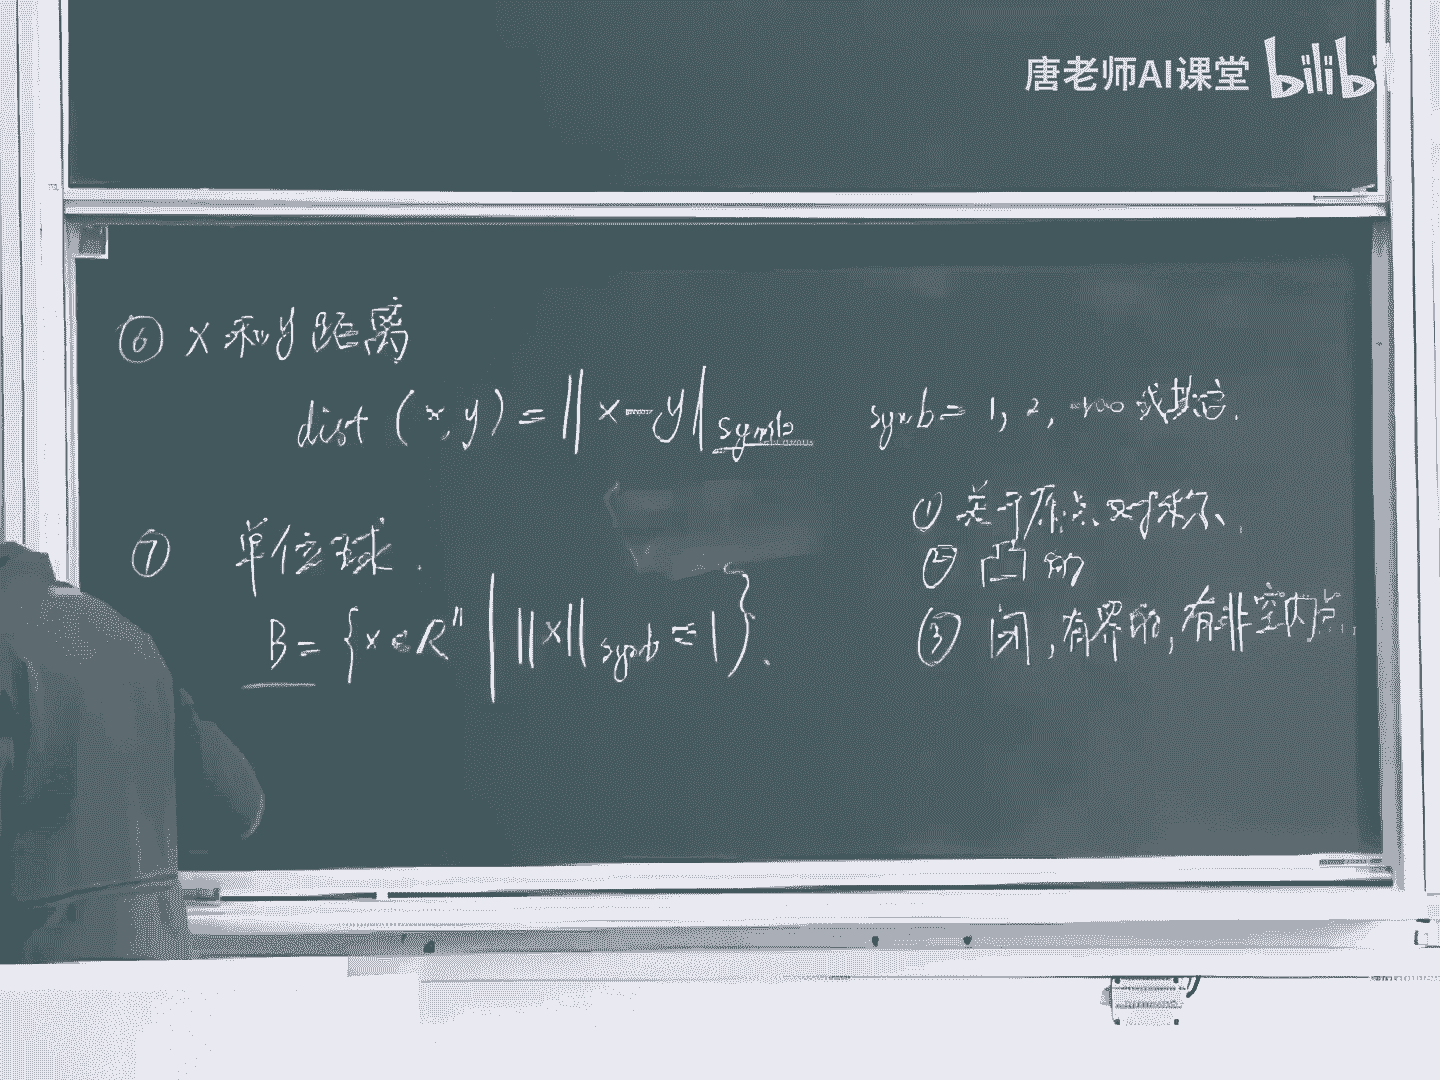 唐老师AI课堂 bilibi
⑥ x和y距离
dist (x, y) = ‖x-y‖symb symb = 1, 2, +∞ 或其它.
⑦ 单位球.
B = {x∈Rⁿ | ‖x‖symb ≤ 1}.
① 关于原点对称、
② 凸的
③ 闭,有界的,有非空内点.